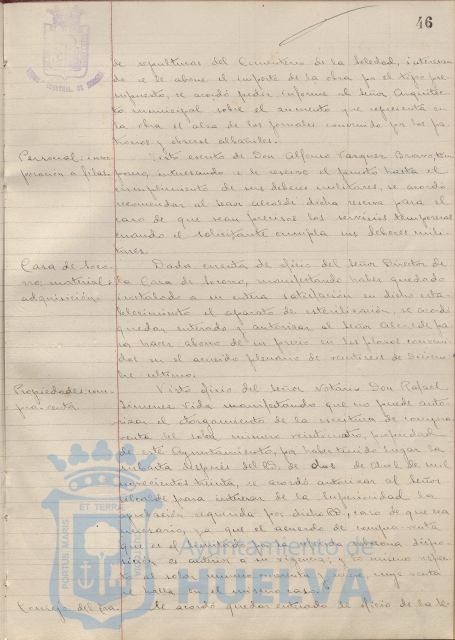 46
de sepulturas del Cementerio de la Soledad, interesan-
do se le abone el importe de la obra por el tipo pre-
supuesto, se acordó pedir informe al Señor Arquitec-
to municipal sobre el aumento que representa en
la obra el alza de los jornales convenido por los pa-
tronos y obreros albañiles.
Personal: incor-
poración a filas.
Visto escrito de Don Alfonso Vazquez Bravo, tem-
porero, interesando se le reserve el puesto hasta el
cumplimiento de sus deberes militares, se acordó
recomendar al Señor Alcalde dicha reserva para el
caso de que sean precisos los servicios temporeros
cuando el solicitante cumpla sus deberes mili-
tares.
Casa de Soco-
rro, material:
adquisición.
Dada cuenta de oficio del Señor Director de
la Casa de Socorro, manifestando haber quedado
instalado a su entera satisfacción en dicho esta-
blecimiento el aparato de esterilización, se acordó
quedar enterado y autorizar al Señor Alcalde pa-
ra hacer abono de su precio en los plazos conveni-
dos en el acuerdo plenario de veintiseis de Diciem-
bre último.
Propiedades: com-
pra-venta.
Visto oficio del Señor Notario Don Rafael
Jimenez Vida manifestando que no puede auto-
rizar el otorgamiento de la escritura de compra-
venta del solar número veinticuatro, propiedad
de este Ayuntamiento, por haber tenido lugar la
subasta después del de dos de Abril de mil
novecientos treinta, se acordó autorizar al Señor
Alcalde para interesar de la Superioridad la
aprobación requerida por dicho caso de que sea
necesario, ya que el acuerdo de compra-venta
que es el
es anterior a su vigencia; y lo mismo respec-
to al solar número cuarenta y nueve, cuya venta
se halla en el mismo caso.
Se acordó quedar enterado de oficio de la
Ayuntamiento de
HUELVA
PORTUS MARIS
ET TERRAE